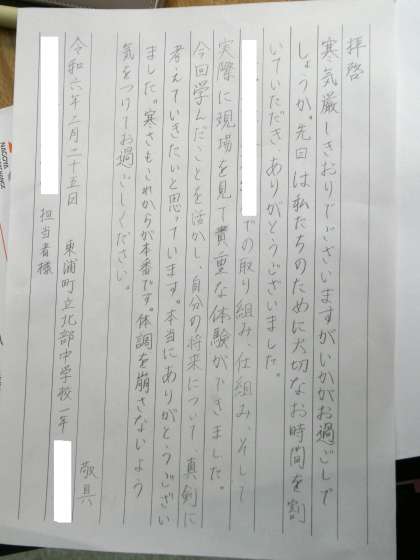 拝啓
寒気厳しきおりでございますがいかがお過ごしで
しょうか。先日は私たちのために大切なお時間を割
いていただき、ありがとうございました。
での取り組み、仕組み、そして
実際に現場を見て貴重な体験ができました。
今回学んだことを活かし、自分の将来について、真剣に
考えていきたいと思っています。本当にありがとうござい
ました。寒さもこれからが本番です。体調を崩さないよう
気をつけてお過ごしください。
敬具
令和六年二月二十五日
東浦町立北部中学校一年
担当者様
NAGOYA